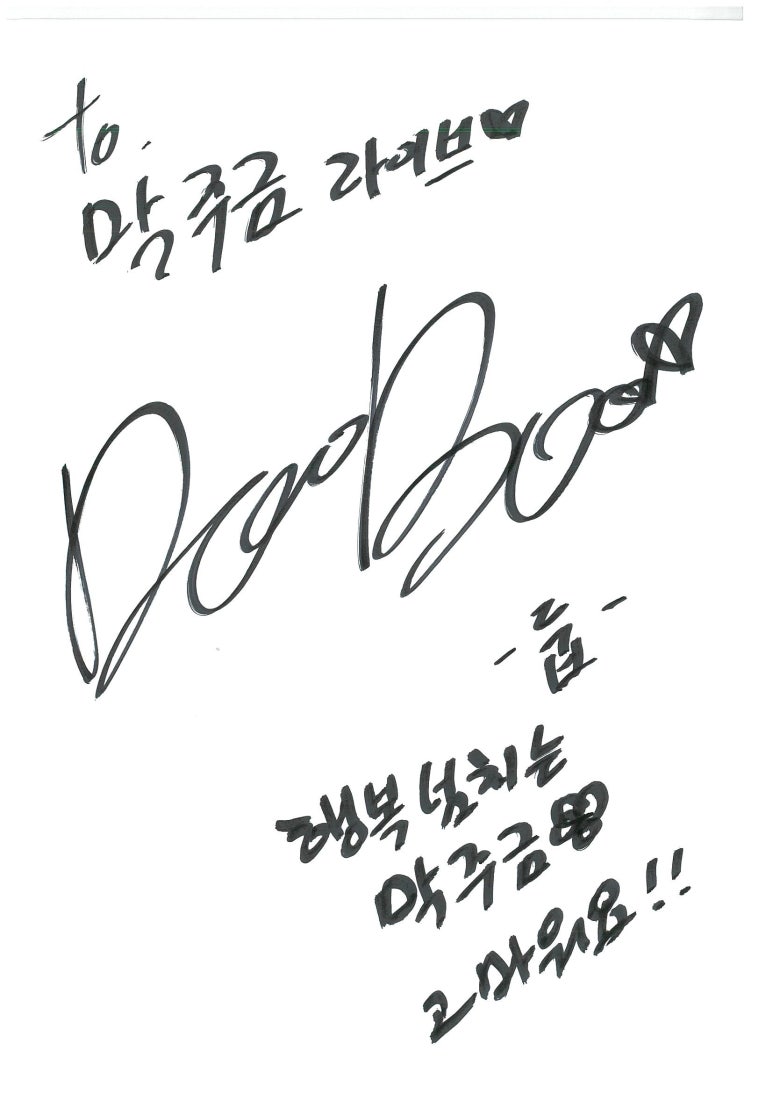 to.
막주금 라이브♡
DooBoo♡
행복 넘치는
막주금
고마워요!!